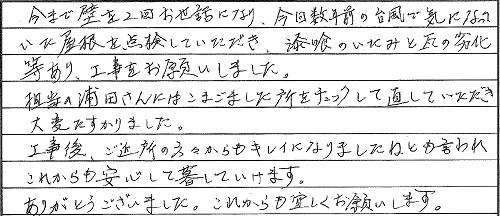 今まで壁を2回お世話になり、今回数年前の台風で気になって
いた屋根を点検していただき、漆喰のいたみと瓦の劣化
等あり、工事をお願いしました。
担当の浦田さんにはこまごました所をチェックして直していただき
大変たすかりました。
工事後、ご近所の方々からもキレイになりましたねとか言われ
これからも安心して暮していけます。
ありがとうございました。これからも宜しくお願いします。